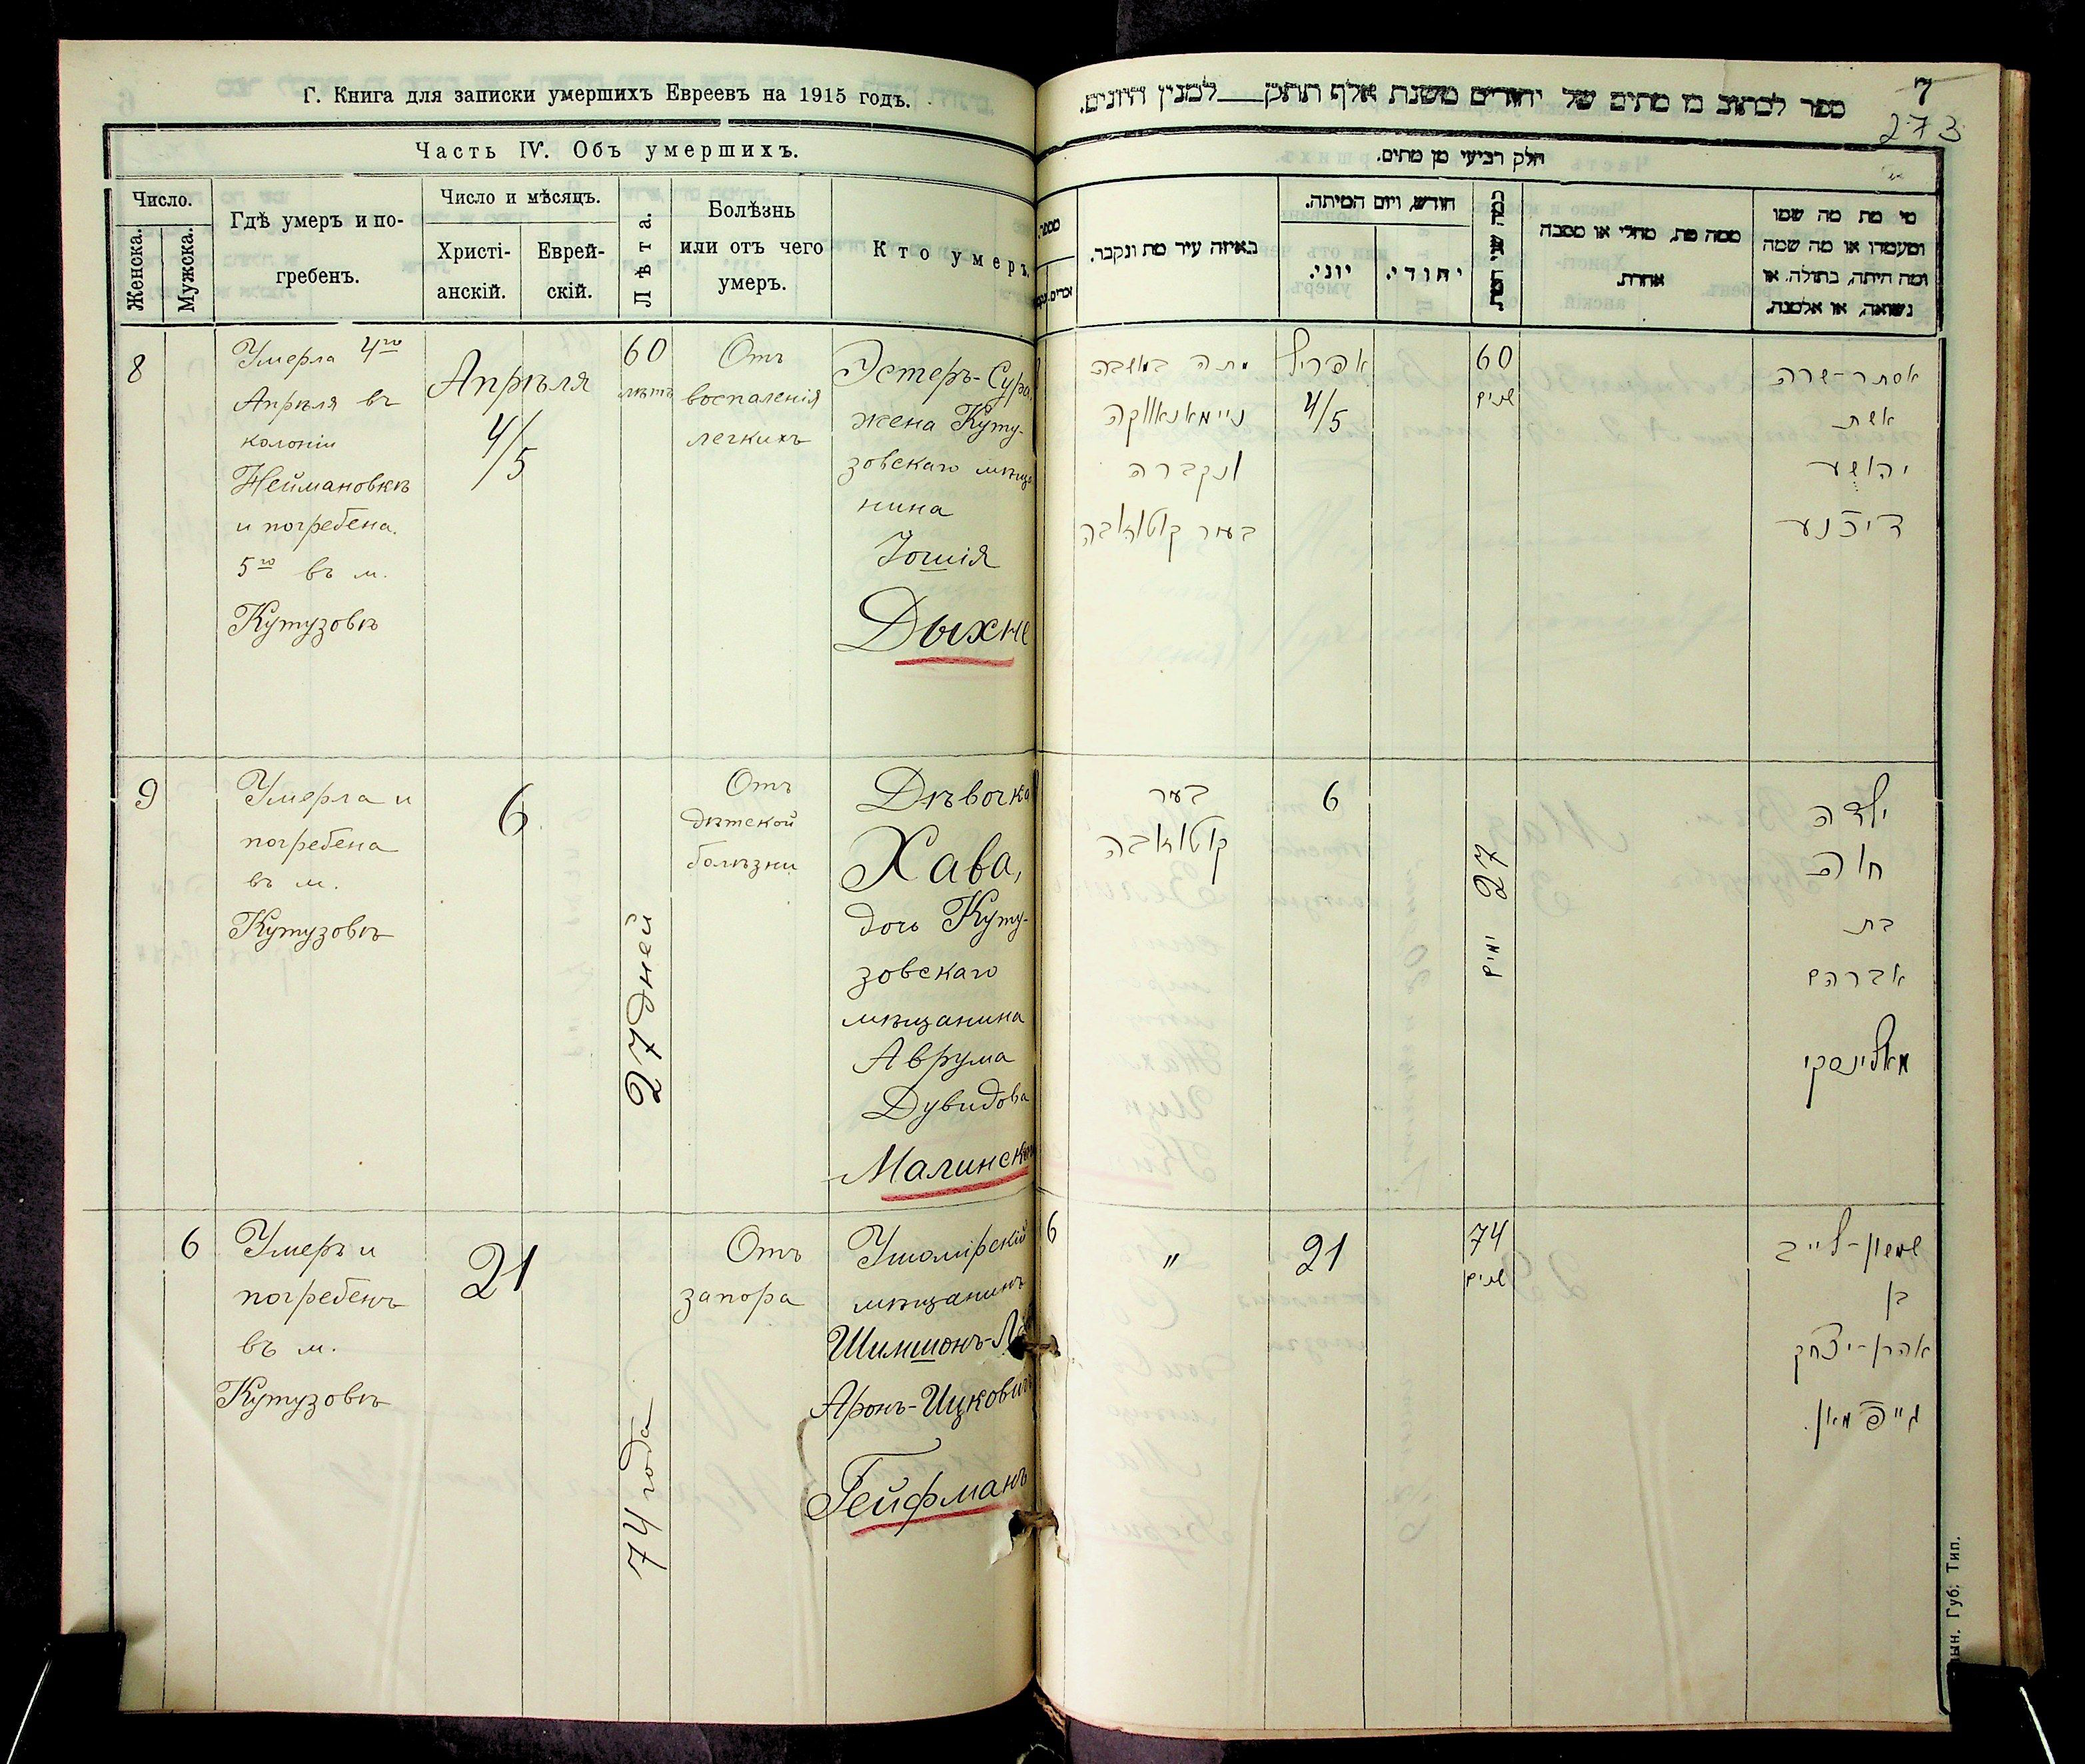 Г. Книга для записки умершихъ Евреевъ на 1915 годъ.
Часть IV. Объ умершихъ.
Число.
Женска.
Мужска.
Гдѣ умеръ и по-
гребенъ.
Число и мѣсяцъ.
Христі-
анскій.
Еврей-
скій.
Лѣта.
Болѣзнь
или отъ чего
умеръ.
Кто умеръ.
8
Умерла 4го
Апрѣля въ
колоніи
Неймановкѣ
и погребена
5го въ м.
Кутузовкѣ
Апрѣля
4/5
60
лѣтъ
Отъ
воспаленія
легкихъ
Эстеръ-Сура,
жена Куту-
зовскаго мѣща
нина
Іошія
Дыхне
9
Умерла и
погребена
въ м.
Кутузовкѣ
6
27 дней
Отъ
дѣтской
болѣзни
Дѣвочка
Хава,
дочь Куту-
зовскаго
мѣщанина
Аврума
Дувидова
Малинск
6
Умеръ и
погребенъ
въ м.
Кутузовкѣ
21
74 года
Отъ
запора
Ушомірскій
мѣщанинъ
Шимшонъ-Л
Аронъ-Ицковичъ
Гейфманъ
7
273
ספר לכתוב מן מתים של יהודים משנת אלף תתק___למנין היונים.
חלק רביעי מן מתים.
מי מת מה שמו
ומעמדו או מה שמה
ומה היתה, בתולה, או
נשואה, או אלמנה.
ממה מת, מחלי או מסבה
אחרת.
חודש, ויום המיתה.
יהודי.
יוני.
באיזה עיר מת ונקבר.
מספר
אסתר-שרה
אשת
יהושע
דיכנע
60
שנים
אפריל
4/5
מתה במושבה
ניימאנאווקה
ונקברה
בעיר קוטוזובה
ילדה
חוה
בת
אברהם
מאלינסקי
27 ימים
6
בעיר
קוטוזובה
שמשון-לייב
בן
אהרן-יצחק
גייפמאן.
74
שנים
21
"
6
Губ. Тип.